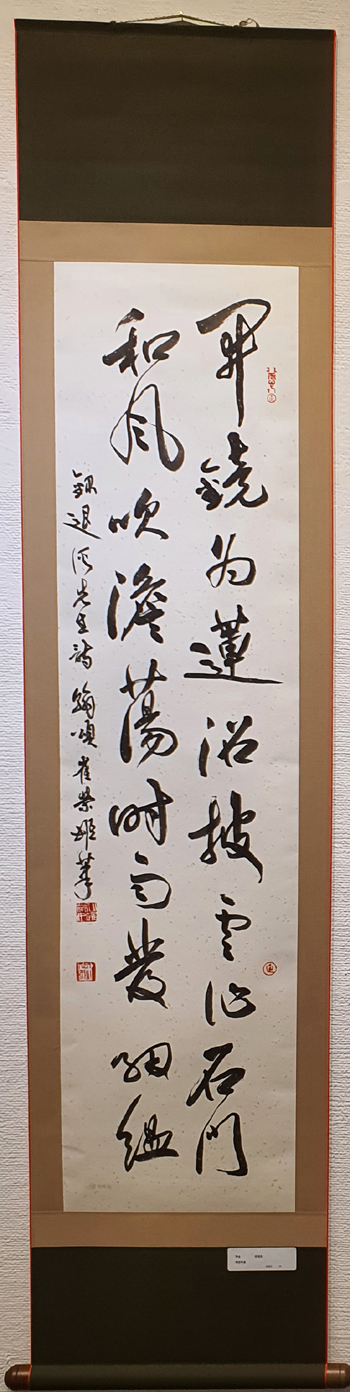 開鏡為蓮沼披雲作石門
和風吹澹蕩時雨發絪縕
錄退溪先生詩 崔榮姬